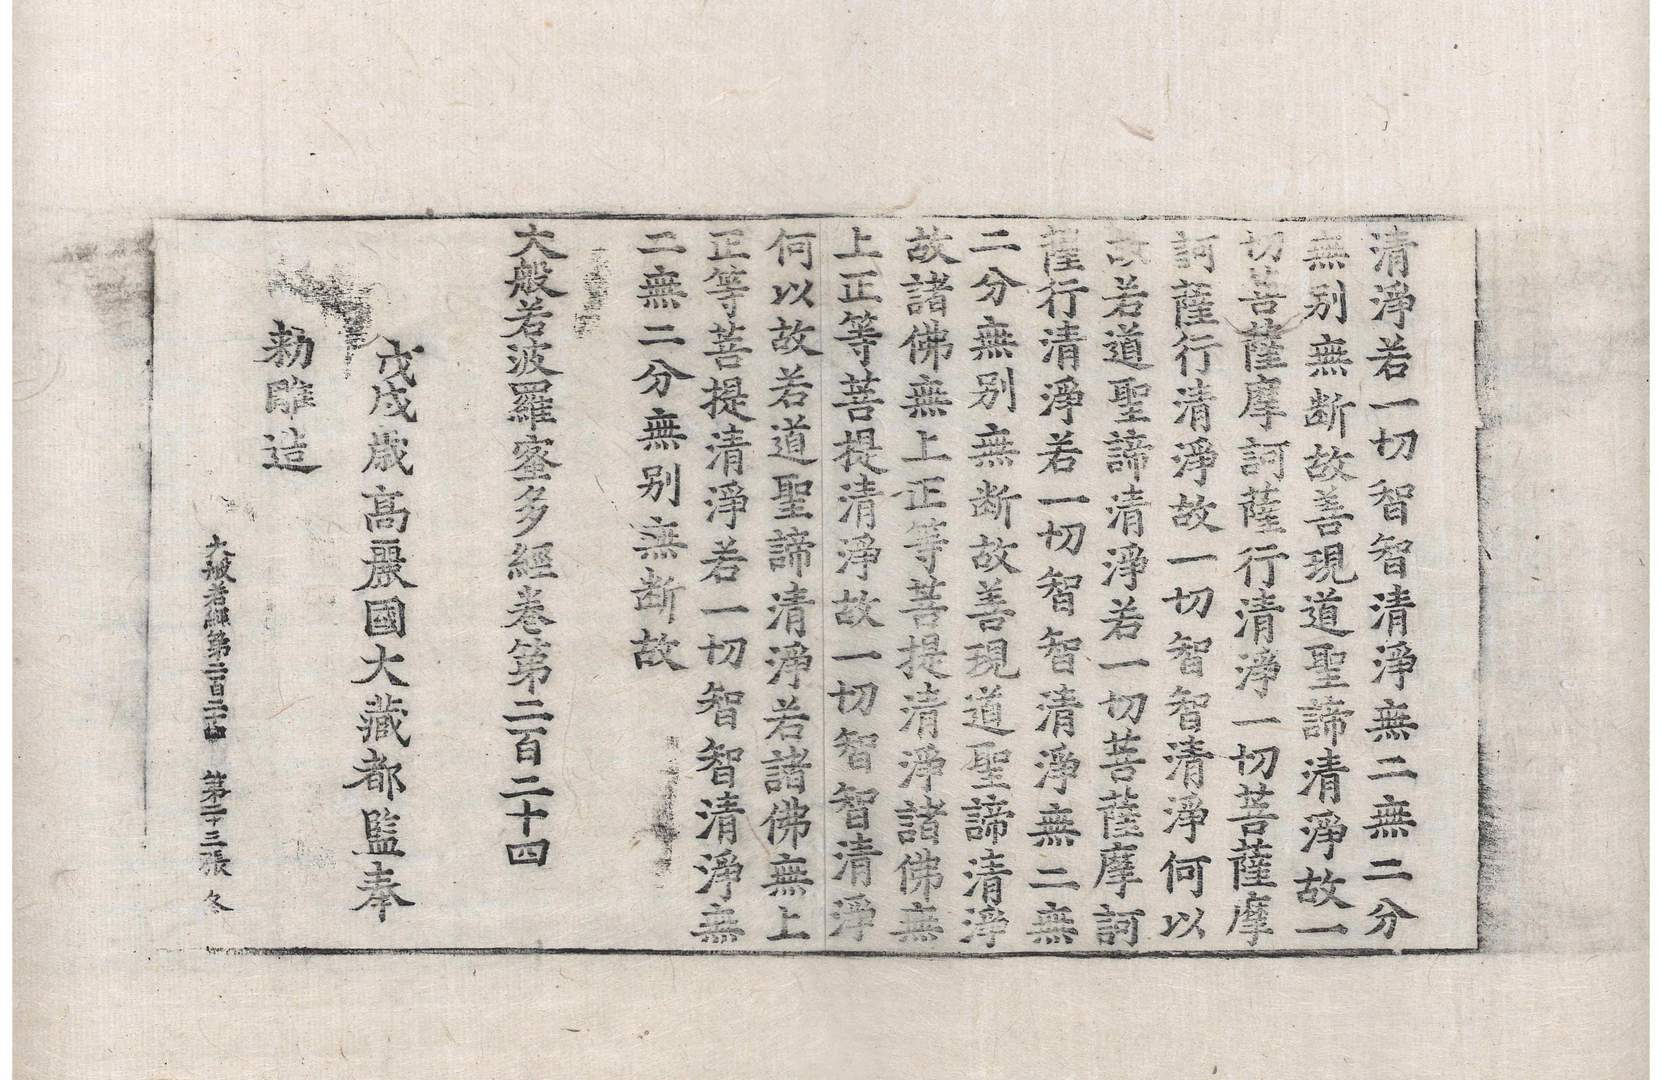 清淨若一切智智清淨無二無二分
無別無斷故善現道聖諦清淨故一
切菩薩摩訶薩行清淨一切菩薩摩
訶薩行清淨故一切智智清淨何以
故若道聖諦清淨若一切菩薩摩訶
薩行清淨若一切智智清淨無二無
二分無別無斷故善現道聖諦清淨
故諸佛無上正等菩提清淨諸佛無
上正等菩提清淨故一切智智清淨
何以故若道聖諦清淨若諸佛無上
正等菩提清淨若一切智智清淨無
二無二分無別無斷故
大般若波羅蜜多經卷第二百二十四
戊戌歲高麗國大藏都監奉
勅雕造
大般若經第二百二十四 第二十三張 冬